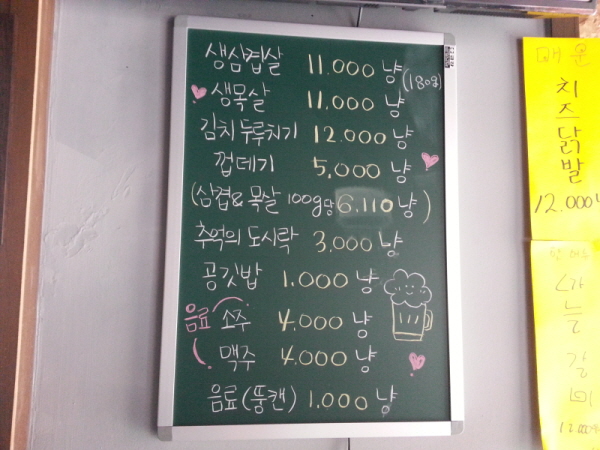 생삼겹살 11.000냥 (180g)
생목살 11.000냥
김치두루치기 12.000냥
껍데기 5,000냥
(삼겹&목살 100g당 6,110냥)
추억의 도시락 3,000냥
공깃밥 1.000냥
음료 소주 4,000냥
맥주 4,000냥
음료(뚱캔) 1.000냥
매운
치즈닭발
12.000
갈
12.000